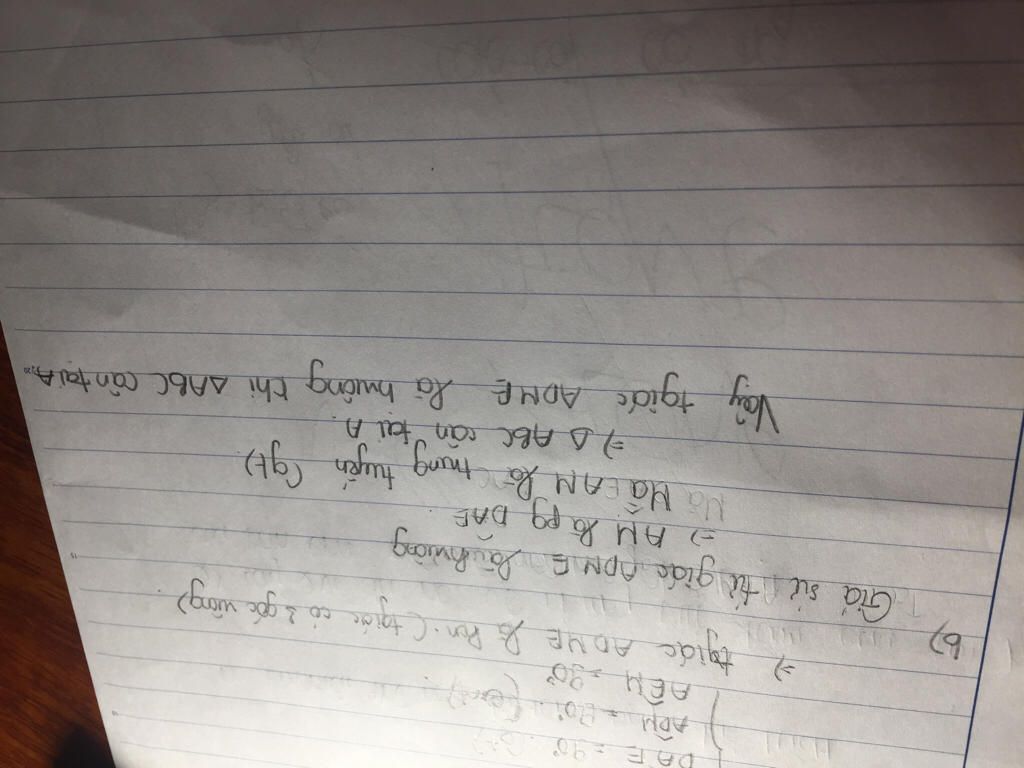 DÂE = 90°
AD̂M = 90°
AÊM = 90°
=> tgiác ADME là hcn. (tgiác có 3 góc vuông)
b)
Giả sử tứ giác ADME là hvuông
=> AM là pg DÂE.
Mà AM là trung tuyến (gt)
=> Δ ABC cân tại A
Vậy tgiác ADME là hvuông khi ΔABC cân tại A